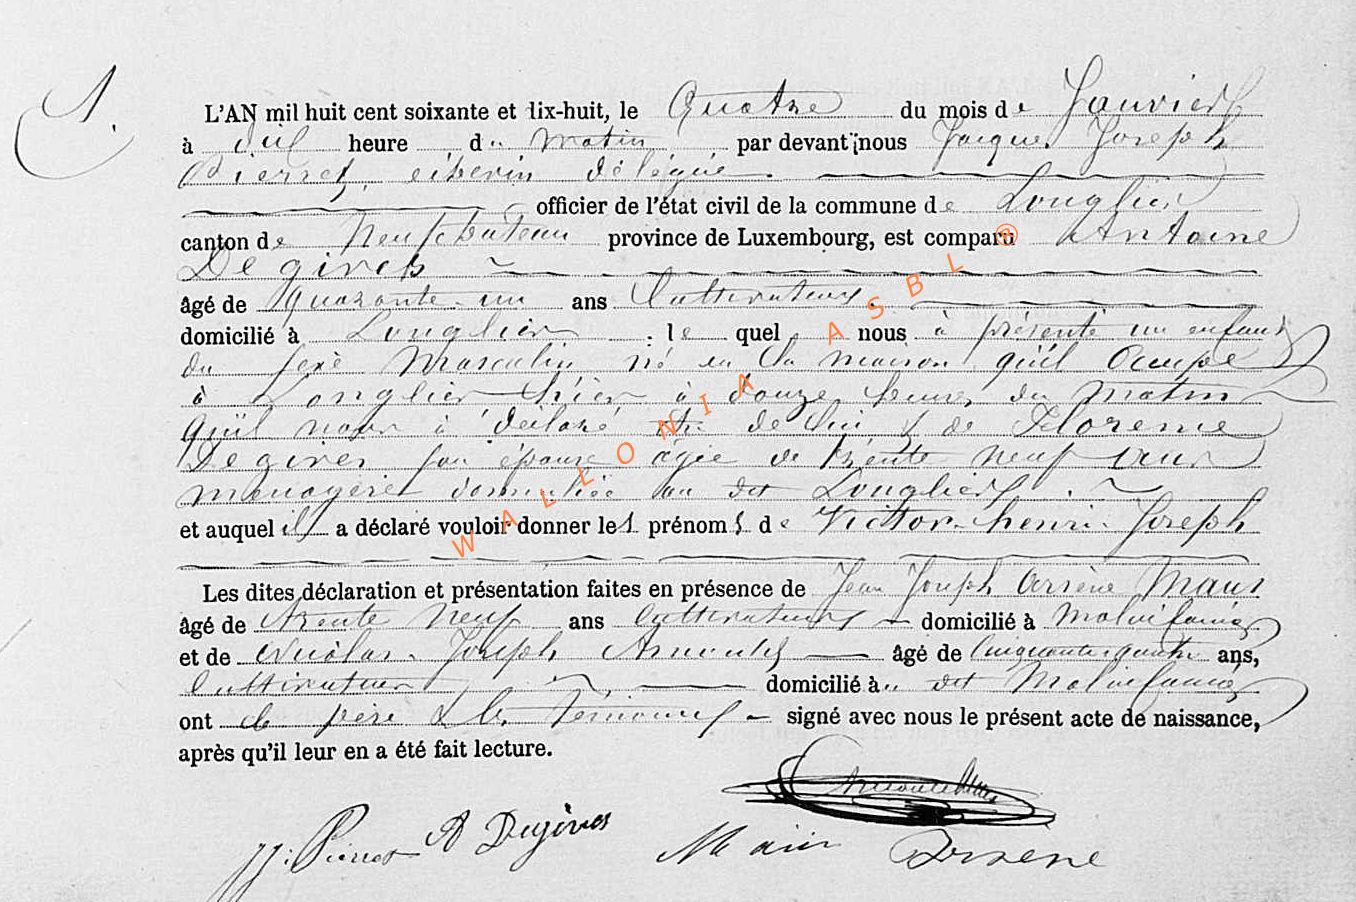 1.
L'AN mil huit cent soixante et dix-huit, le Quatre du mois de Janvier
à dix heure du matin par devant nous Jacques Joseph
Pierret, échevin délégué
officier de l'état civil de la commune de Longlier
canton de Neufchateau province de Luxembourg, est comparu Antoine
Degives
âgé de Quarante-un ans Cultivateur
domicilié à Longlier : le quel nous à présenté un enfant
du sexe Masculin né en la maison qu'il occupe
à Longlier hier à douze heures du matin
qu'il nous à déclaré être de lui & de Florence
Degives son épouse âgée de trente neuf ans
ménagère domiciliée au dit Longlier.
et auquel il a déclaré vouloir donner les prénoms de Victor-henri-Joseph
Les dites déclaration et présentation faites en présence de Jean Joseph Arsène Maus
âgé de trente neuf ans Cultivateur domicilié à Molinfaing
et de Nicolas-Joseph Arnould âgé de Cinquante quatre ans,
Cultivateur domicilié au dit Molinfaing
ont le père & les témoins signé avec nous le présent acte de naissance,
après qu'il leur en a été fait lecture.
JJ: Pierret A Degives
Arsène
WALLONIA ASBL ®